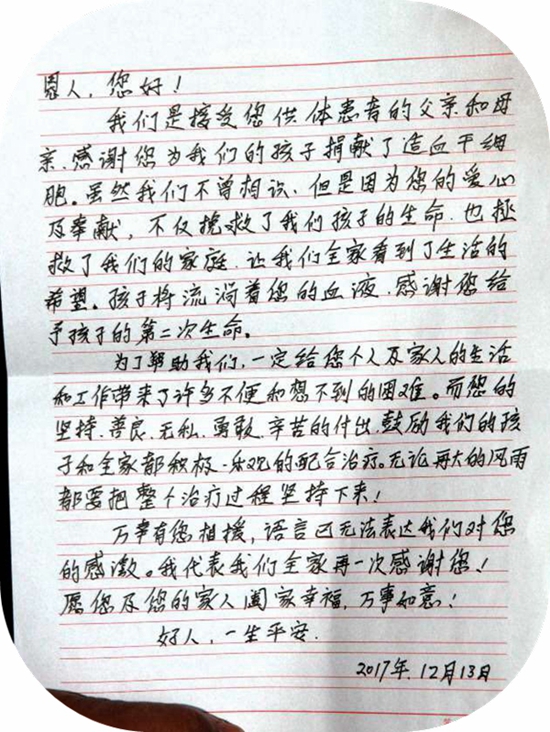 恩人，您好！
我们是接受您供体患者的父亲和母
亲，感谢您为我们的孩子捐献了造血干细
胞。虽然我们不曾相识，但是因为您的爱心
及奉献，不仅挽救了我们孩子的生命，也拯
救了我们的家庭，让我们全家看到了生活的
希望。孩子将流淌着您的血液，感谢您给
予孩子的第二次生命。
为了帮助我们，一定给您个人及家人的生活
和工作带来了许多不便和想不到的困难。而您的
坚持、善良、无私、勇敢、辛苦的付出，鼓励我们的孩
子和全家都积极、乐观的配合治疗。无论再大的风雨
都要把整个治疗过程坚持下来！
万幸有您相援，语言已无法表达我们对您
的感激。我代表我们全家再一次感谢您！
愿您及您的家人阖家幸福，万事如意！
好人，一生平安．
2017年．12月13日